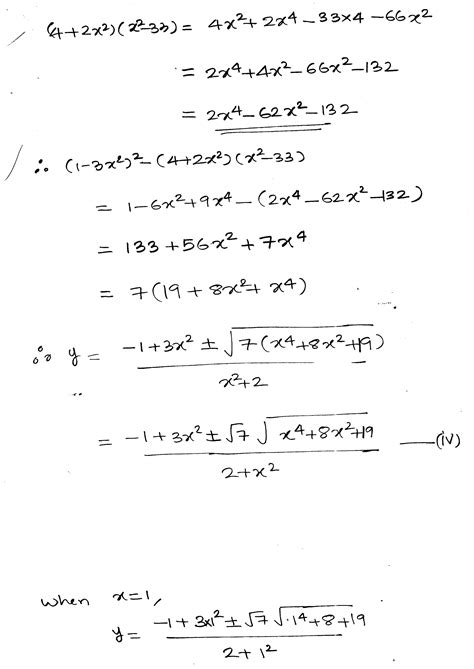 (4+2x²)(x²-33) = 4x²+2x⁴-33×4-66x²
= 2x⁴+4x²-66x²-132
= 2x⁴-62x²-132
∴ (1-3x²)²-(4+2x²)(x²-33)
= 1-6x²+9x⁴-(2x⁴-62x²-132)
= 133+56x²+7x⁴
= 7(19+8x²+x⁴)
∴ y = (-1+3x² ± √(7(x⁴+8x²+19)))/(x²+2)
= (-1+3x² ± √7 √(x⁴+8x²+19))/(2+x²) —(iv)
when x=1,
y = (-1+3×1² ± √7 √(1⁴+8+19))/(2+1²)